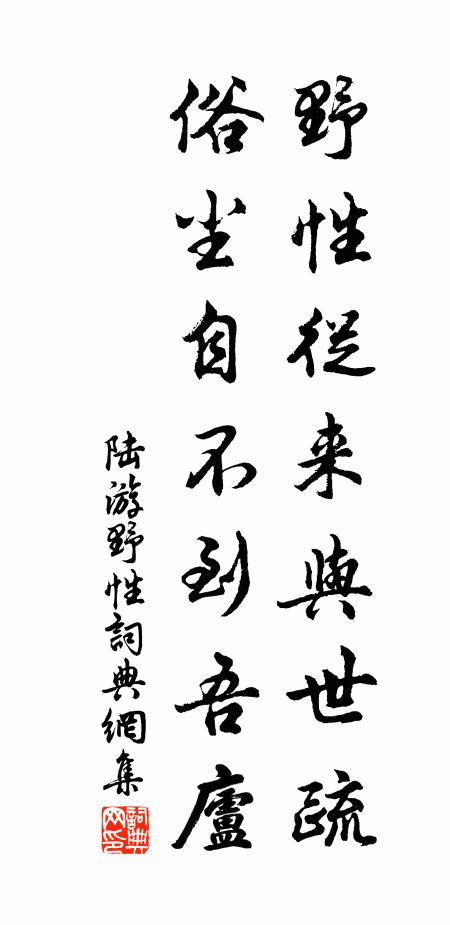 野性從来與世疏
俗尘自不到吾廬
陆游野性詞典網集
詞典网印